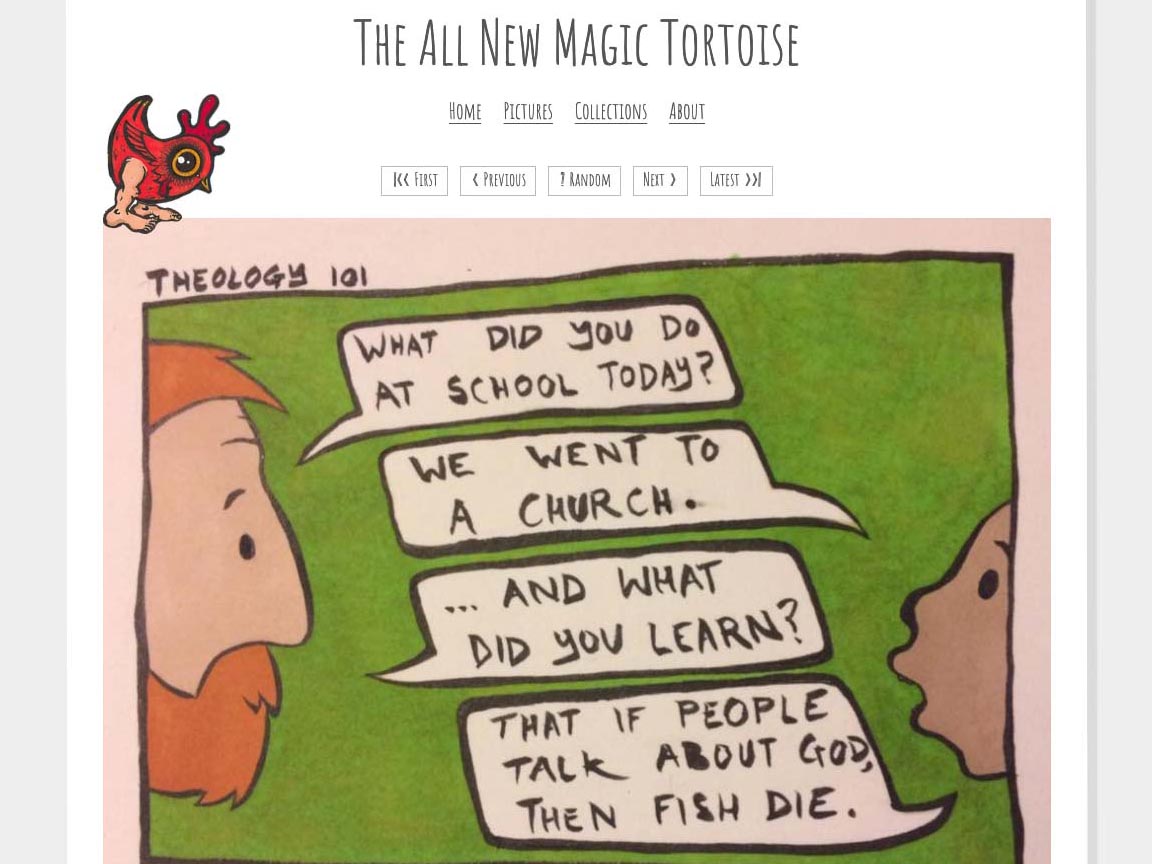 The All New Magic Tortoise
Home Pictures Collections About
|<< First < Previous ? Random Next > Latest >>|
THEOLOGY 101
WHAT DID YOU DO
AT SCHOOL TODAY?
WE WENT TO
A CHURCH.
... AND WHAT
DID YOU LEARN?
THAT IF PEOPLE
TALK ABOUT GOD,
THEN FISH DIE.